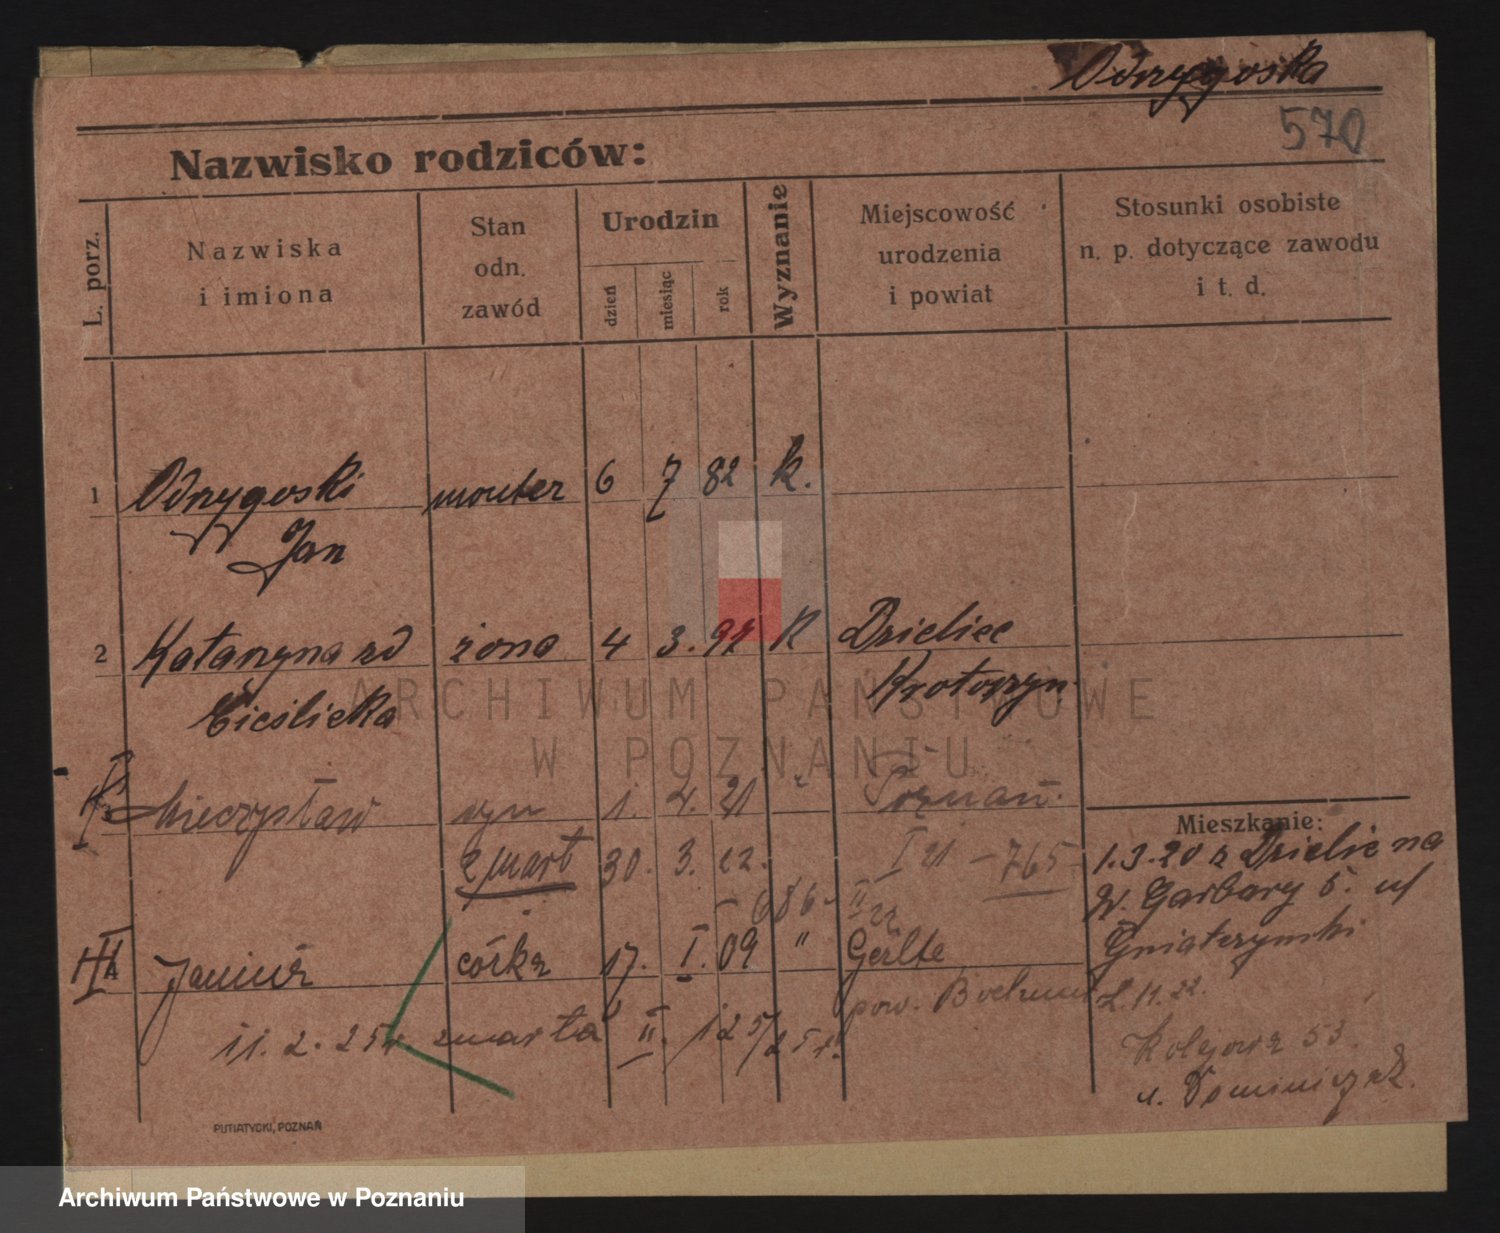 Odrygoska
570
Nazwisko rodziców:
L. porz.
Nazwiska
i imiona
Stan
odn.
zawód
Urodzin
dzień
miesiąc
rok
Wyznanie
Miejscowość
urodzenia
i powiat
Stosunki osobiste
n. p. dotyczące zawodu
i t. d.
1 Odrygoski monter 6 7 82 k.
Jan
2 Katarzyna zd żona 4 3. K Dzielice
Cieślicka Krotoszyn
I
Mieczysław syn 1. 4. 21 " Poznań.
Mieszkanie:
zmarł 30. 3. 22. I 21 - 765
1.3.20 z Dzielic na
- 686 - II 22
W. Garbary 5. u/
II 4 córka 17. I. 09 "
Gniatczyński
pow. Bochum
2.11.22.
11. 2. 25r. zmarła II. 125/25r.
Kolejowa 53.
u. Dominiczak.
PUTIATYCKI, POZNAŃ
ARCHIWUM PAŃSTWOWE
W POZNANIU
Archiwum Państwowe w Poznaniu